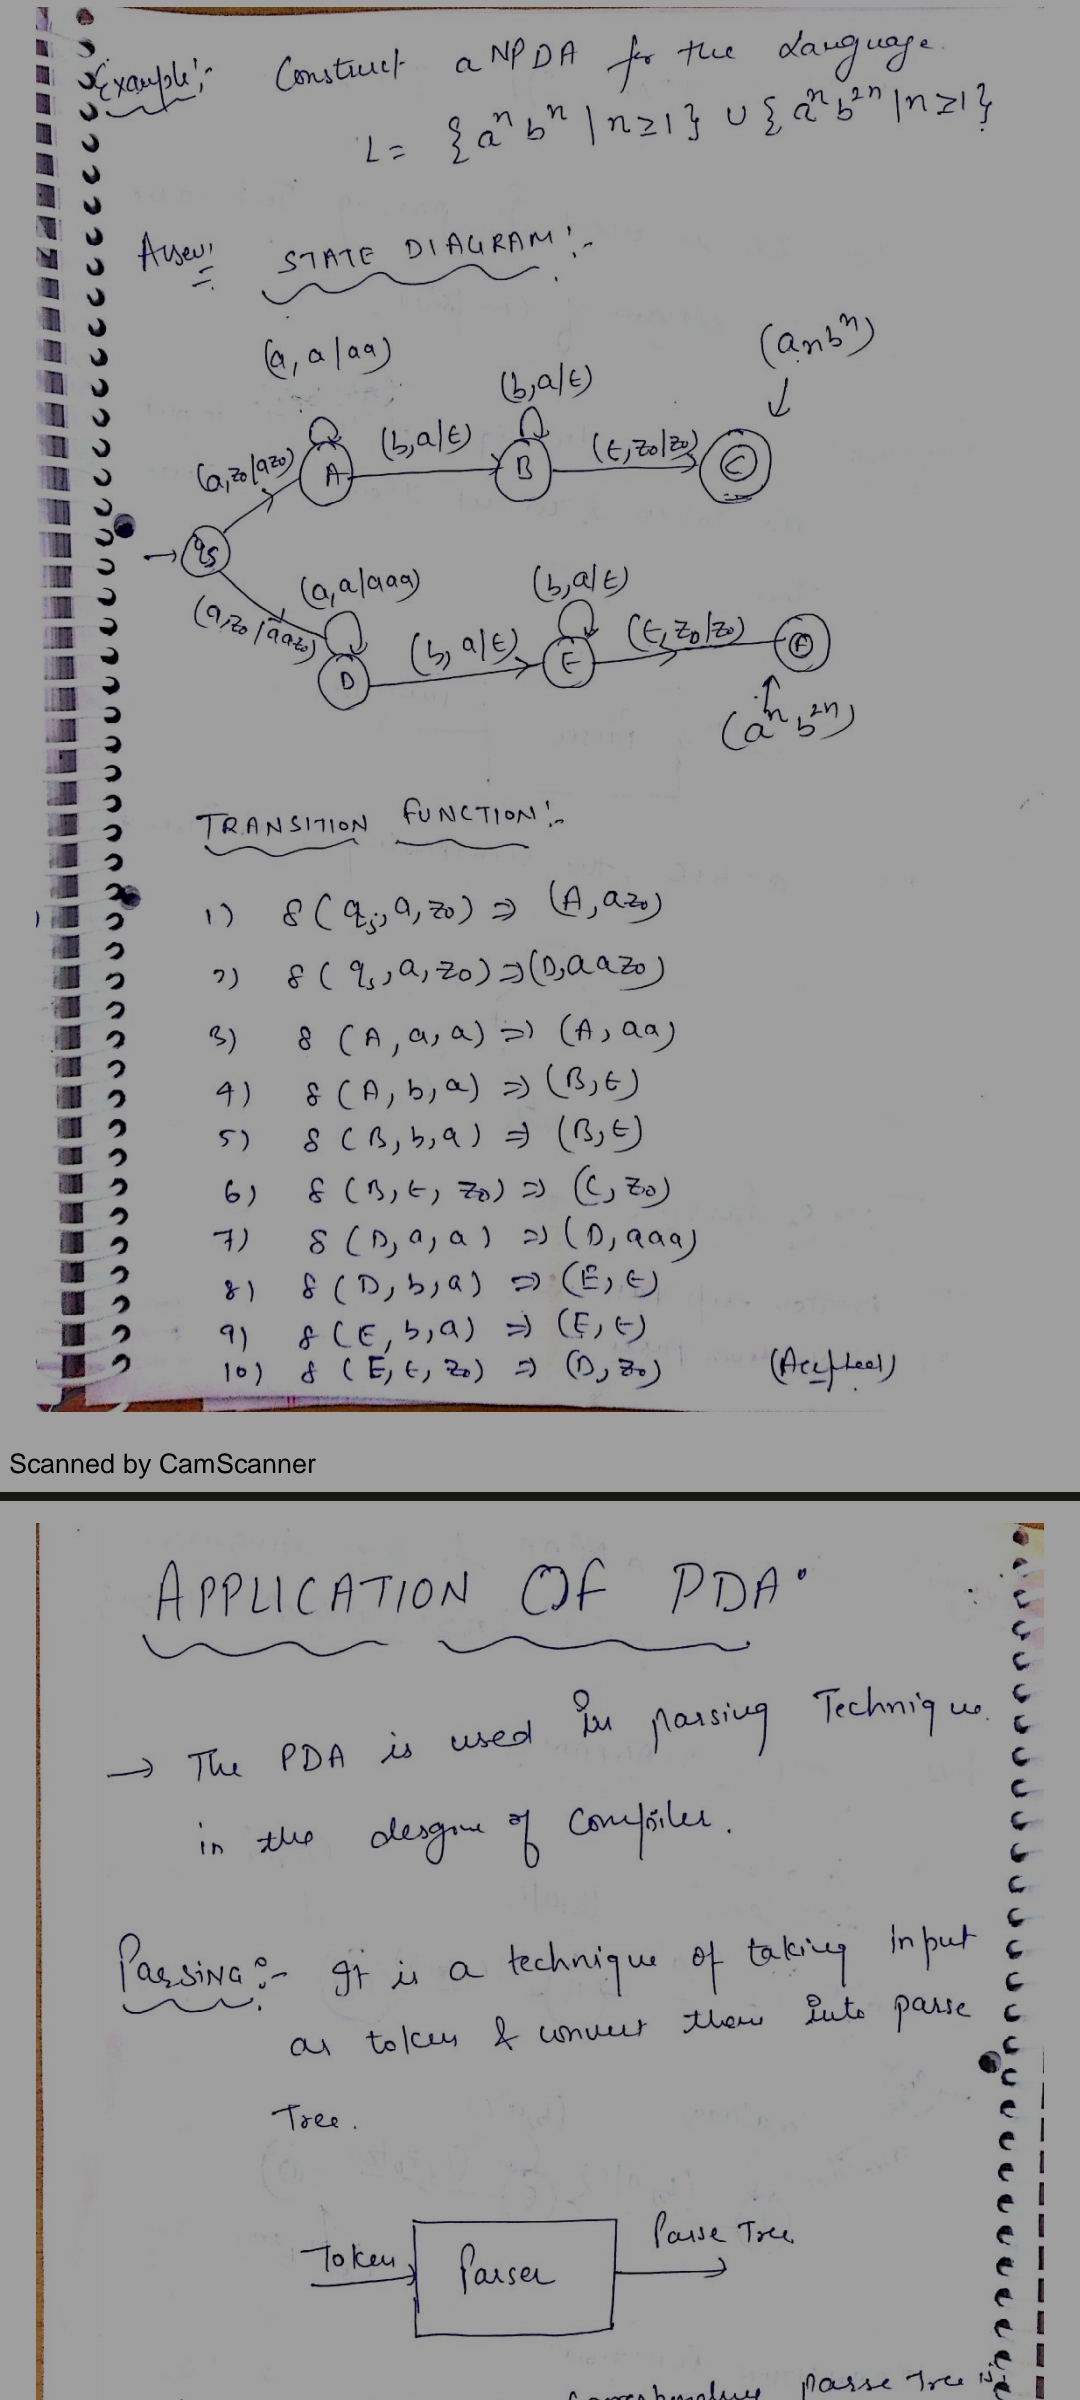 Example:- Construct a NPDA for the Language.
L = {aⁿbⁿ | n≥1} ∪ {aⁿb²ⁿ | n≥1}
STATE DIAGRAM:-
(anbⁿ)
(a, a/aa)
(b,a/ε)
(a,z₀/az₀) A (b,a/ε) B (ε,z₀/z₀) C
qs
(a,a/aaa) (b,a/ε)
(a,z₀/aaz₀) D (b,a/ε) E (ε,z₀/z₀)
(aⁿb²ⁿ)
TRANSITION FUNCTION:-
1) δ(qs,a,z₀) ⇒ (A,az₀)
2) δ(qs,a,z₀) ⇒ (D,aaz₀)
3) δ(A,a,a) ⇒ (A,aa)
4) δ(A,b,a) ⇒ (B,ε)
5) δ(B,b,a) ⇒ (B,ε)
6) δ(B,ε,z₀) ⇒ (C,z₀)
7) δ(D,a,a) ⇒ (D,aaa)
8) δ(D,b,a) ⇒ (E,ε)
9) δ(E,b,a) ⇒ (E,ε)
10) δ(E,ε,z₀) ⇒ (D,z₀)
Scanned by CamScanner
APPLICATION OF PDA.
→ The PDA is used in parsing Technique.
in the of Compiler.
PARSING:- It is a technique of taking input
as token & convert them into parse
Tree.
Token Parser Parse Tree
parse Tree is